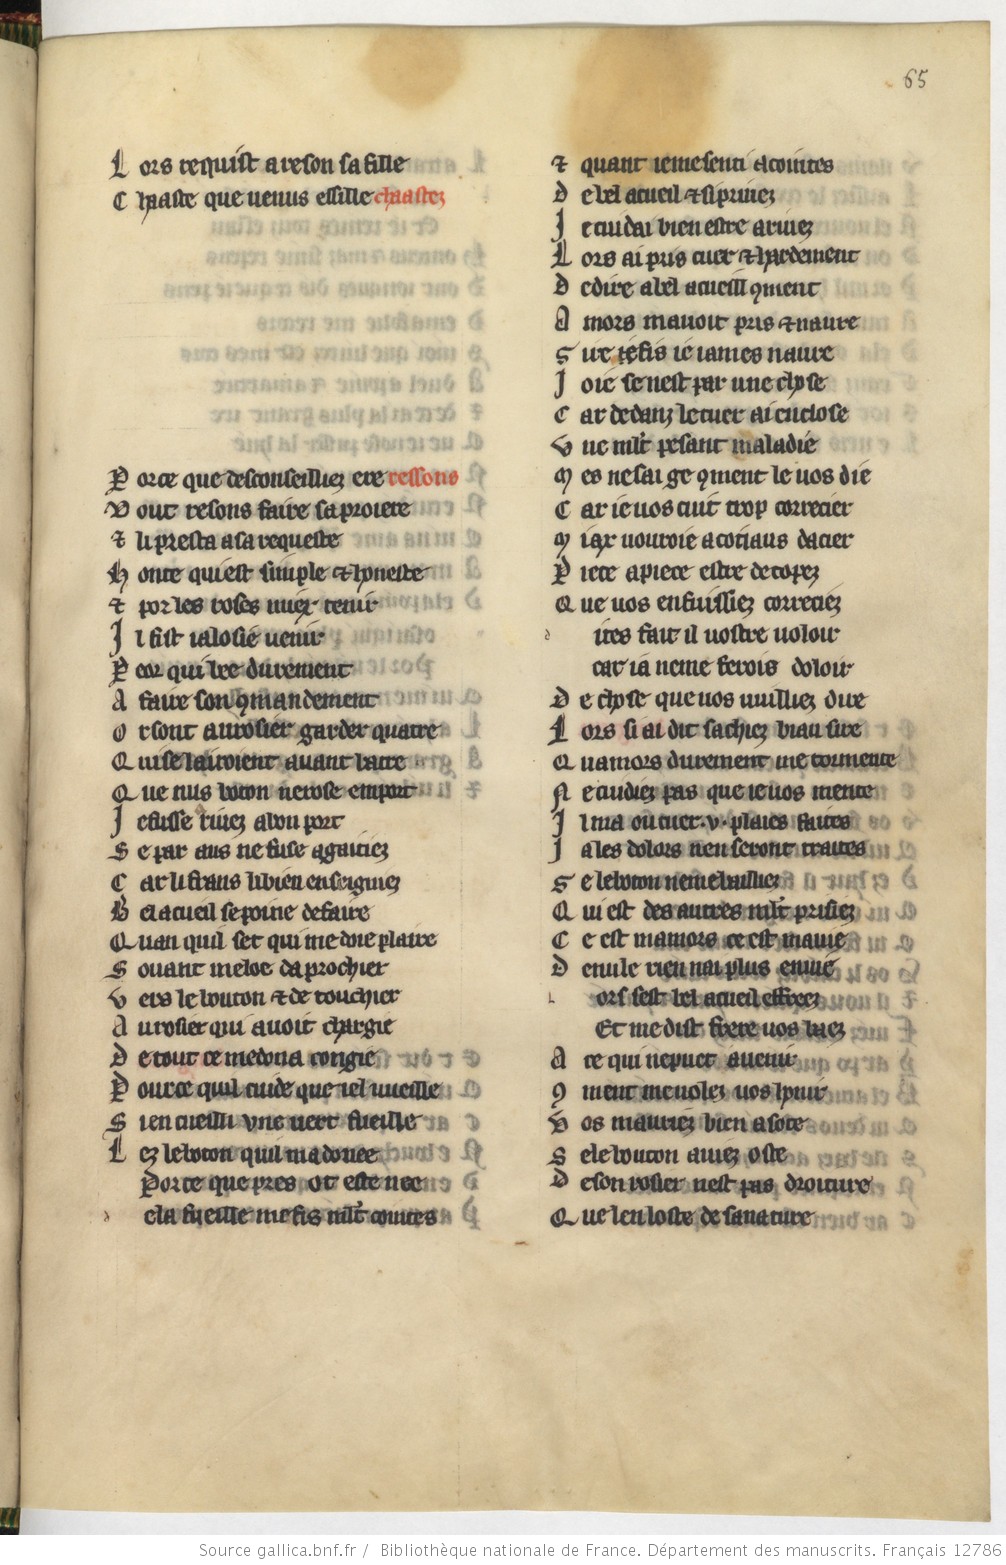 65
Lors requist a reson sa fille
Chaste que uenus essille chaastez
Porce que desconseilliez ere ressons
Vout resons faire sa proiere
⁊ li presta a sa requeste
Honte qui est simple ⁊ honeste
⁊ por les roses miex tenir
I fist ialosie uenir
Peor qui bee durement
A faire son ꝯmandement
Or sont au rosier garder quatre
Qui se lairoient auant batre
Que nus boton ne rose emport
Ie fusse riuez a bon port
Se par aus ne fuse agaitiez
Car li frans li bien enseigniez
Bel acueil se poine de faire
Quan quil set qui me doie plaire
Souant me loe daprochier
Vers le bouton ⁊ de touchier
Au rosier qui auoit chargie
De tout ce me dona congie
Pource quil cuide que iel uueille
Si en cueilli vne uert fueille
Lez le boton quil ma donee
Porce que pres ot este nee
e la fueille me fis ml't cointes
⁊ quant ie me senti acointes
De bel acueil ⁊ si priuez
Ie cuidai bien estre ariuez
Lors ai pris cuer ⁊ hardement
De dire a bel acueill ꝯment
Amors mauoit pris ⁊ naure
Sire fis ie iames naure
Ioie se nest par une chose
Car dedanz le cuer ai enclose
Vne ml't pesant maladie
Mes ne sai ge ꝯment le uos die
Car ie uos cuit trop correcier
Miax uouroie a cotiaus dacier
Piece a piece estre decopez
Que uos en fuissiez correciez
d ites fait il uostre uoloir
car ia ne me ferois doloir
De chose que uos uuilliez dire
Lors si ai dit sachiez biau sire
Quamors durement me tormente
Ne cuidiez pas que ie uos mente
Il ma ou cuer .v. plaies faites
Ia les dolors nen seront traites
Se le boton ne me bailliez
Qui est des autres ml't prisiez
Ce est ma mors ce est ma uie
De nule rien nai plus enuie
l ors sest bel acueil effreez
Et me dist frere uos beez
A ce qui ne puet auenir
ꝯment me uolez uos honir
Vos mauriez bien asote
Se le bouton auiez oste
De son rosier nest pas droiture
Que len loste de sa nature
Source gallica.bnf.fr / Bibliothèque nationale de France. Département des manuscrits. Français 12786